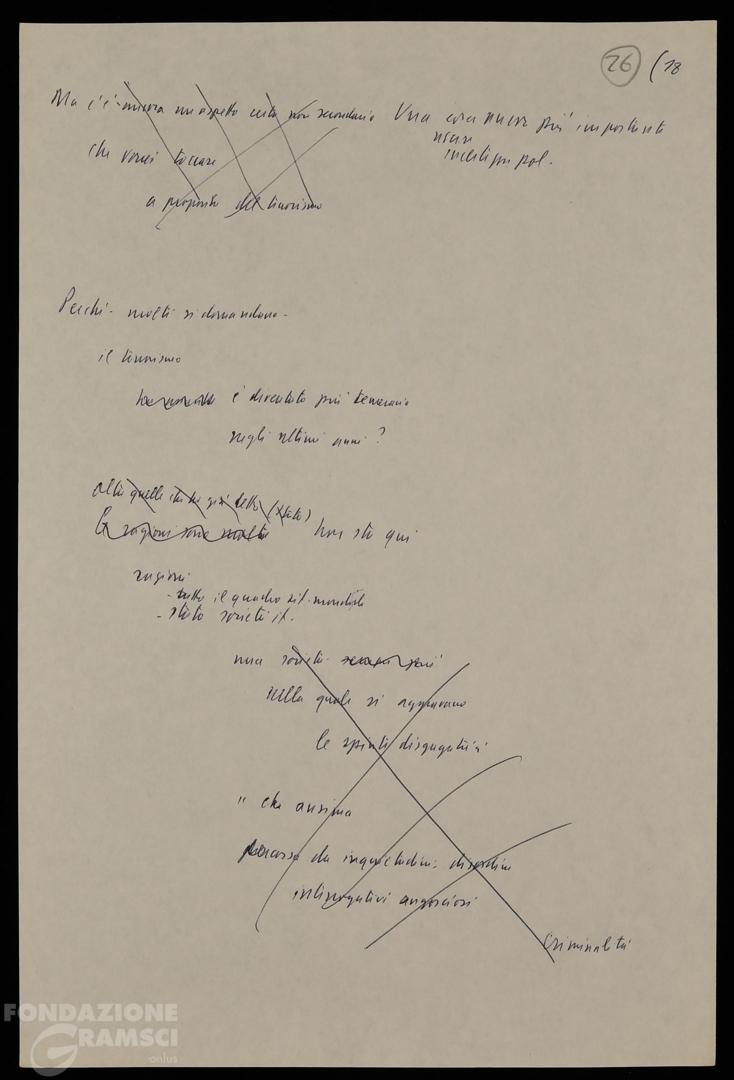 26 (18
Ma c'è ancora un aspetto certo non secondario
che vorrei toccare
a proposito del terrorismo
Una cosa ancora più importante
interrog. pol.
Perché - molti si domandano -
il terrorismo
è diventato più temerario
negli ultimi anni?
Oltre quelle che ho già detto (Stato)
Le ragioni sono molte Non sto qui
ragioni
- tutto il quadro sit. mondiale
- stato società it.
una società sempre più
nella quale si aggravano
le spinte disgregatrici
" che ansima
percossa da inquietudini, disordini
interrogativi angosciosi
Criminalità
FONDAZIONE
GRAMSCI
onlus